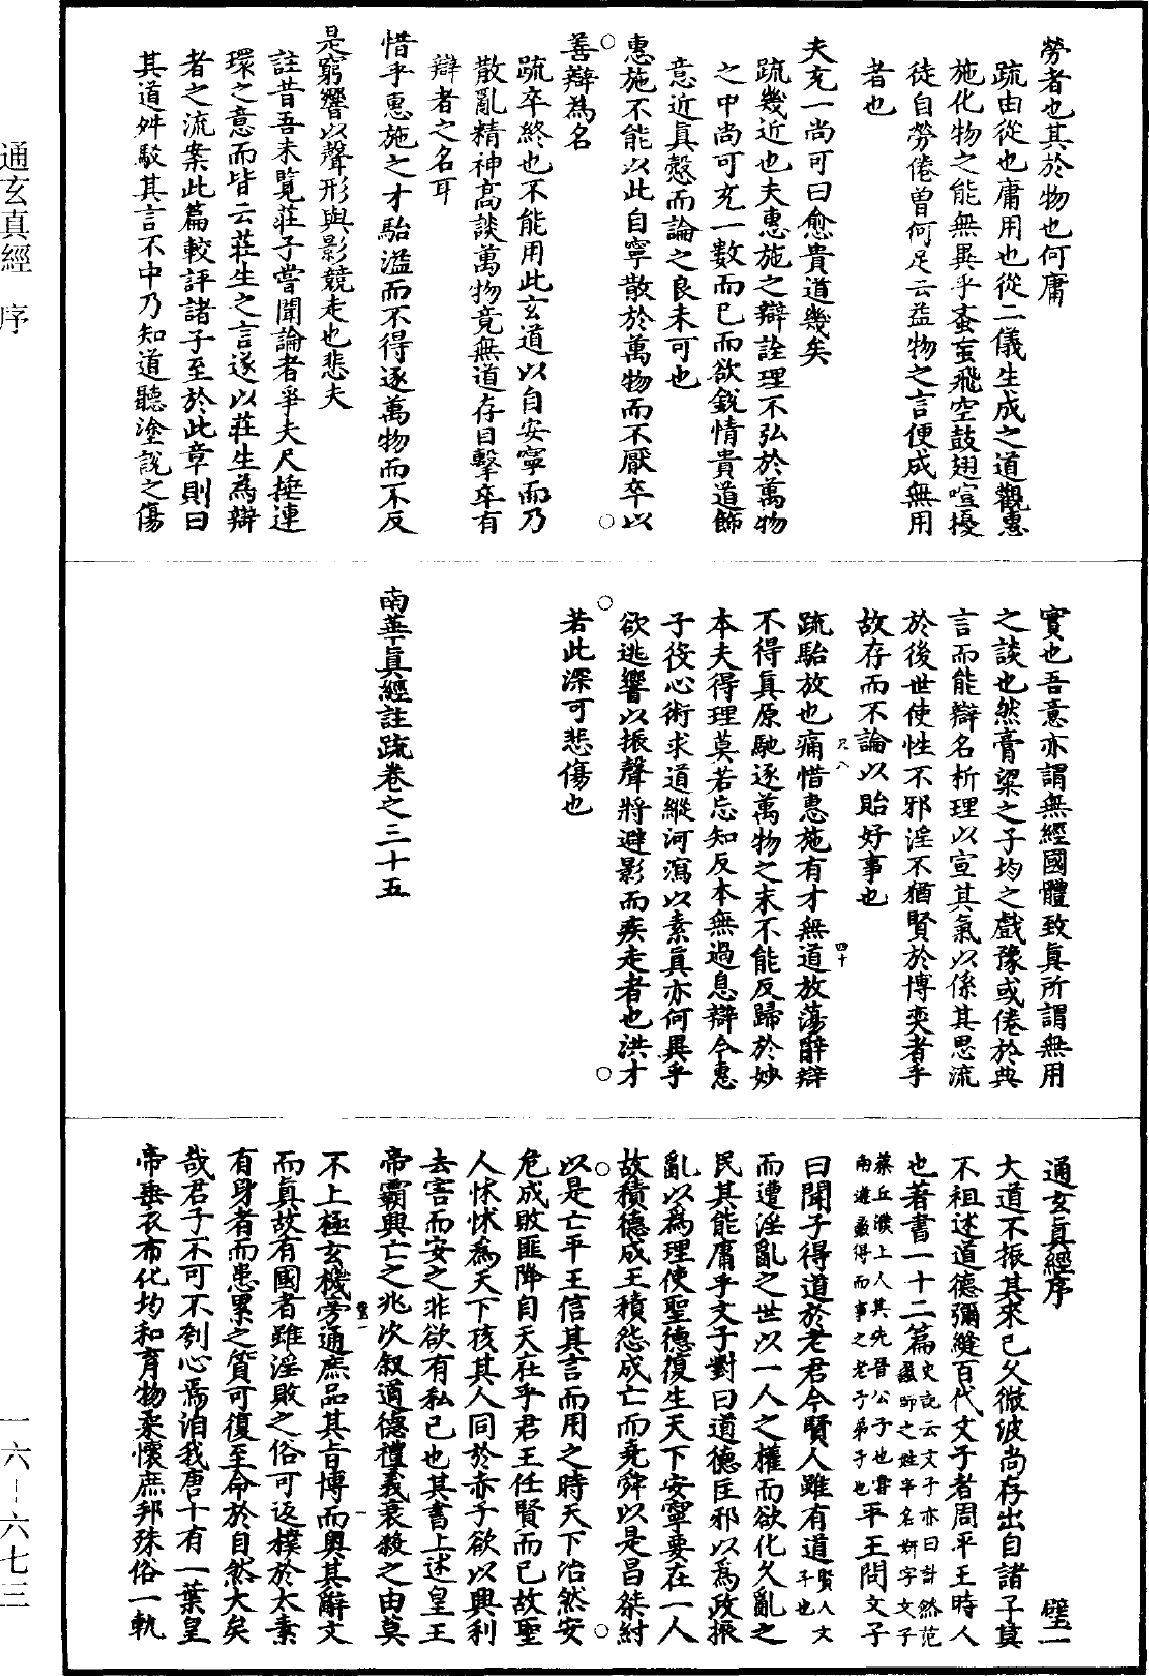 勞者也其於物也何庸
疏由從也庸用也從二儀生成之道觀惠
施化物之能無異乎蚉䖟飛空鼓翅喧擾
徒自勞倦曾何足云益物之言便成無用
者也
夫充一尚可曰愈貴道幾矣
疏幾近也夫惠施之辯詮理不弘於萬物
之中尚可充一數而已而欲銳情貴道飾
意近真愨而論之良未可也
惠施不能以此自寧散於萬物而不厭卒以
善辯為名
疏卒終也不能用此玄道以自安寧而乃
散亂精神高談萬物竟無道存目擊卒有
辯者之名耳
惜乎惠施之才駘濫而不得逐萬物而不反
是窮響以聲形與影競走也悲夫
註昔吾未覽莊子嘗聞論者爭夫尺捶連
環之意而皆云莊生之言遂以莊生為辯
者之流案此篇較評諸子至於此章則曰
其道舛駁其言不中乃知道聽塗說之傷
實也吾意亦謂無經國體致真所謂無用
之談也然膏粱之子均之戲豫或倦於典
言而能辯名析理以宣其氣以係其思流
於後世使性不邪淫不猶賢於博奕者乎
故存而不論以貽好事也
疏駘放也痛惜惠施有才無道放蕩辭辯
不得真原馳逐萬物之末不能反歸於妙
本夫得理莫若忘知反本無過息辯今惠
子役心術求道縱河瀉以索真亦何異乎
欲逃響以振聲將避影而疾走者也洪才
若此深可悲傷也
南華真經註疏卷之三十五
通玄真經序 璧一
大道不振其來已久微波尚存出自諸子莫
不祖述道德彌縫百代文子者周平王時人
也著書一十二篇史記云文子亦曰計然范蠡師之姓辛名妍字文子
葵丘濮上人其先晉公子也嘗南遊蠡得而事之老子弟子也平王問文子
曰聞子得道於老君今賢人雖有道賢人文子也
而遭淫亂之世以一人之權而欲化久亂之
民其能庸乎文子對曰道德匡邪以為政振
亂以為理使聖德復生天下安寧要在一人
故積德成王積怨成亡而堯舜以是昌桀紂
以是亡平王信其言而用之時天下治然安
危成敗匪降自天在乎君王任賢而已故聖
人怵怵為天下孩其人同於赤子欲以興利
去害而安之非欲有私己也其書上述皇王
帝霸興亡之兆次叙道德禮義衰殺之由莫
不上極玄機旁通庶品其旨博而奧其辭文
而真故有國者雖淫敗之俗可返樸於太素
有身者而患累之質可復至命於自然大矣
哉君子不可不刳心焉洎我唐十有一葉皇
帝垂衣布化均和育物柔懷庶邦殊俗一軌
通玄真經 序
一六－六七三